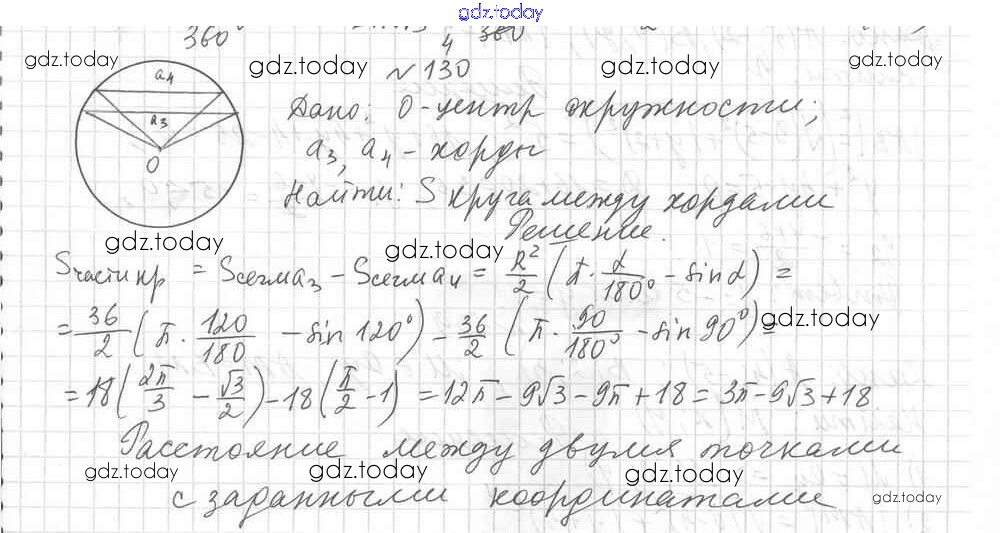 gdz.today
360° 4 360
gdz.today gdz.today gdz.today gdz.today
№ 130
a₄
a₃
O
Дано: O - центр окружности;
a₃, a₄ - хорды
Найти: S круга между хордами
Решение.
gdz.today gdz.today
Sчасти кр = Sсегм a₃ - Sсегм a₄ = R²/2 (π · α/180° - sin α) =
= 36/2 (π · 120/180 - sin 120°) - 36/2 (π · 90/180° - sin 90°) =
gdz.today
= 18 (2π/3 - √3/2) - 18 (π/2 - 1) = 12π - 9√3 - 9π + 18 = 3π - 9√3 + 18
Расстояние между двумя точками
gdz.today gdz.today gdz.today gdz.today
с заданными координатами